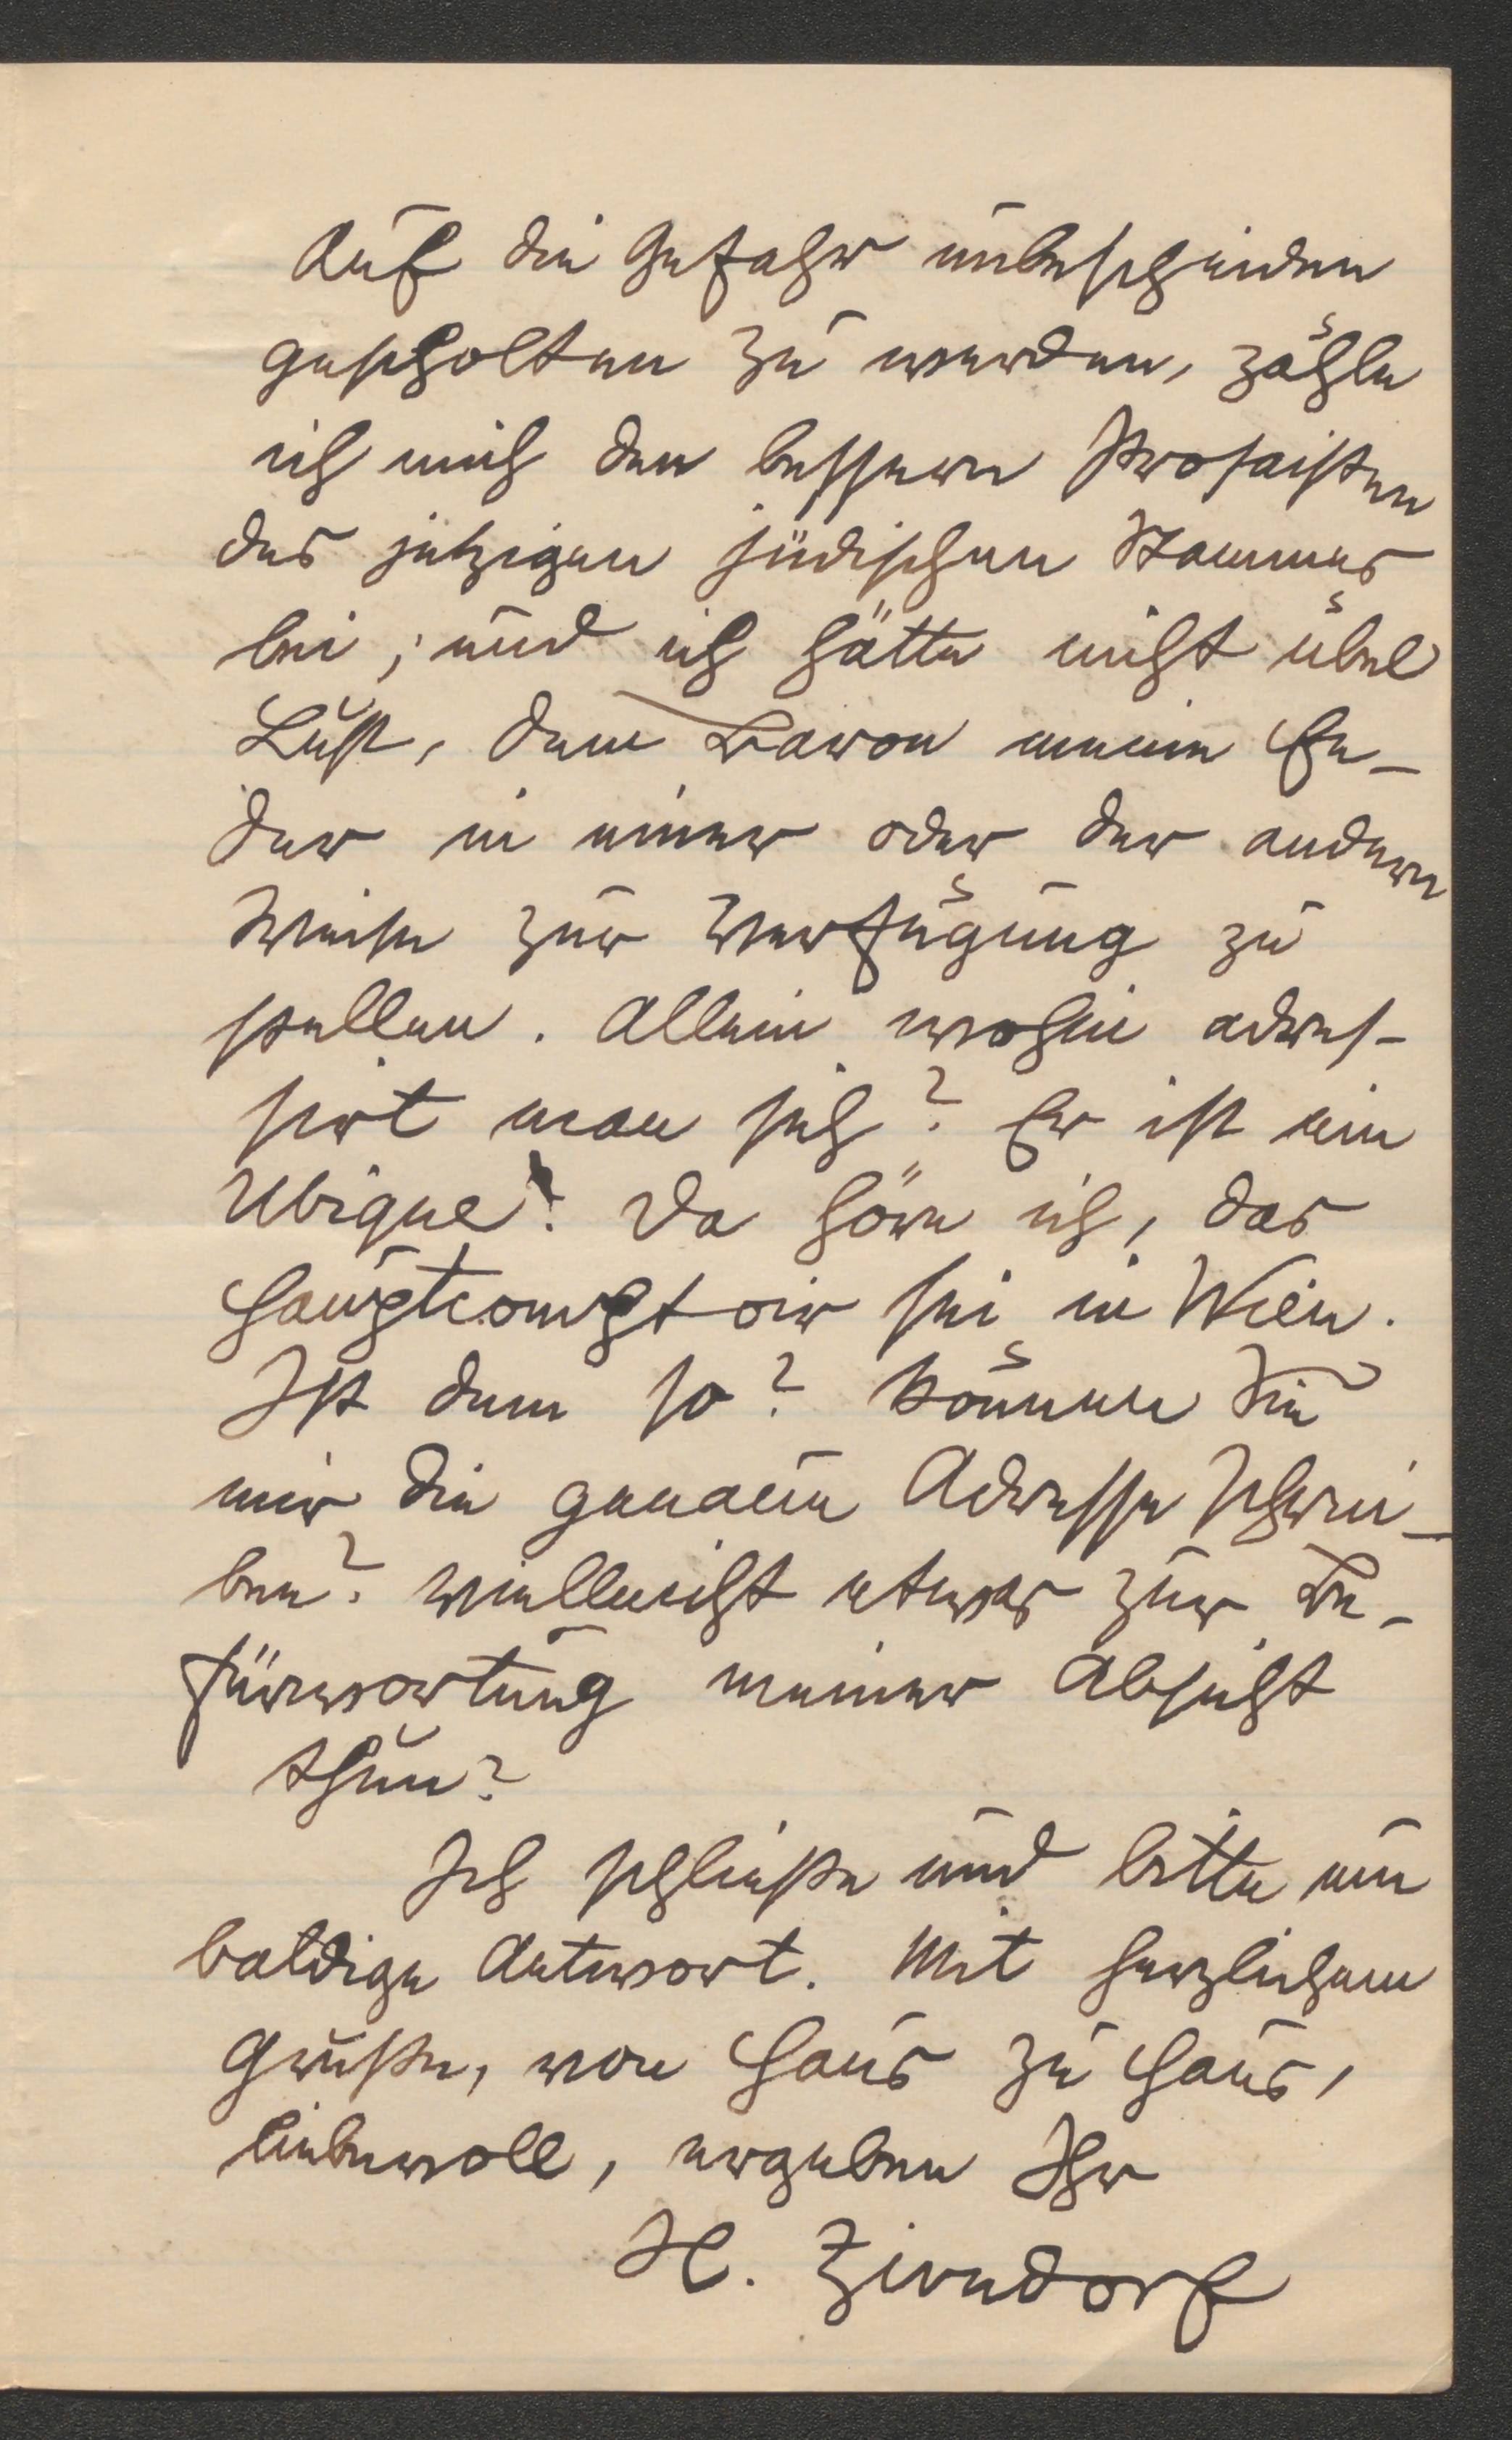 Auf die Gefahr unbescheiden
gescholten zu werden, zähle
ich mich den bessern Prosaisten
des jetzigen jüdischen Stammes
bei; und ich hätte nicht übel
Lust, dem Baron meine Fe-
der in einer oder der andern
Weise zur Verfügung zu
stellen. Allein wohin adres-
sirt man sich? Er ist ein
Ubique! Da höre ich, das
Hauptcomptoir sei in Wien.
Ist dem so? Können Sie
mir die genaue Adresse schrei-
ben? Vielleicht etwas zur Be-
fürwortung meiner Absicht
thun?
Ich schließe und bitte um
baldige Antwort. Mit herzlichem
Gruße, von Haus zu Haus,
liebevoll, ergeben Ihr
H. Zirndorf